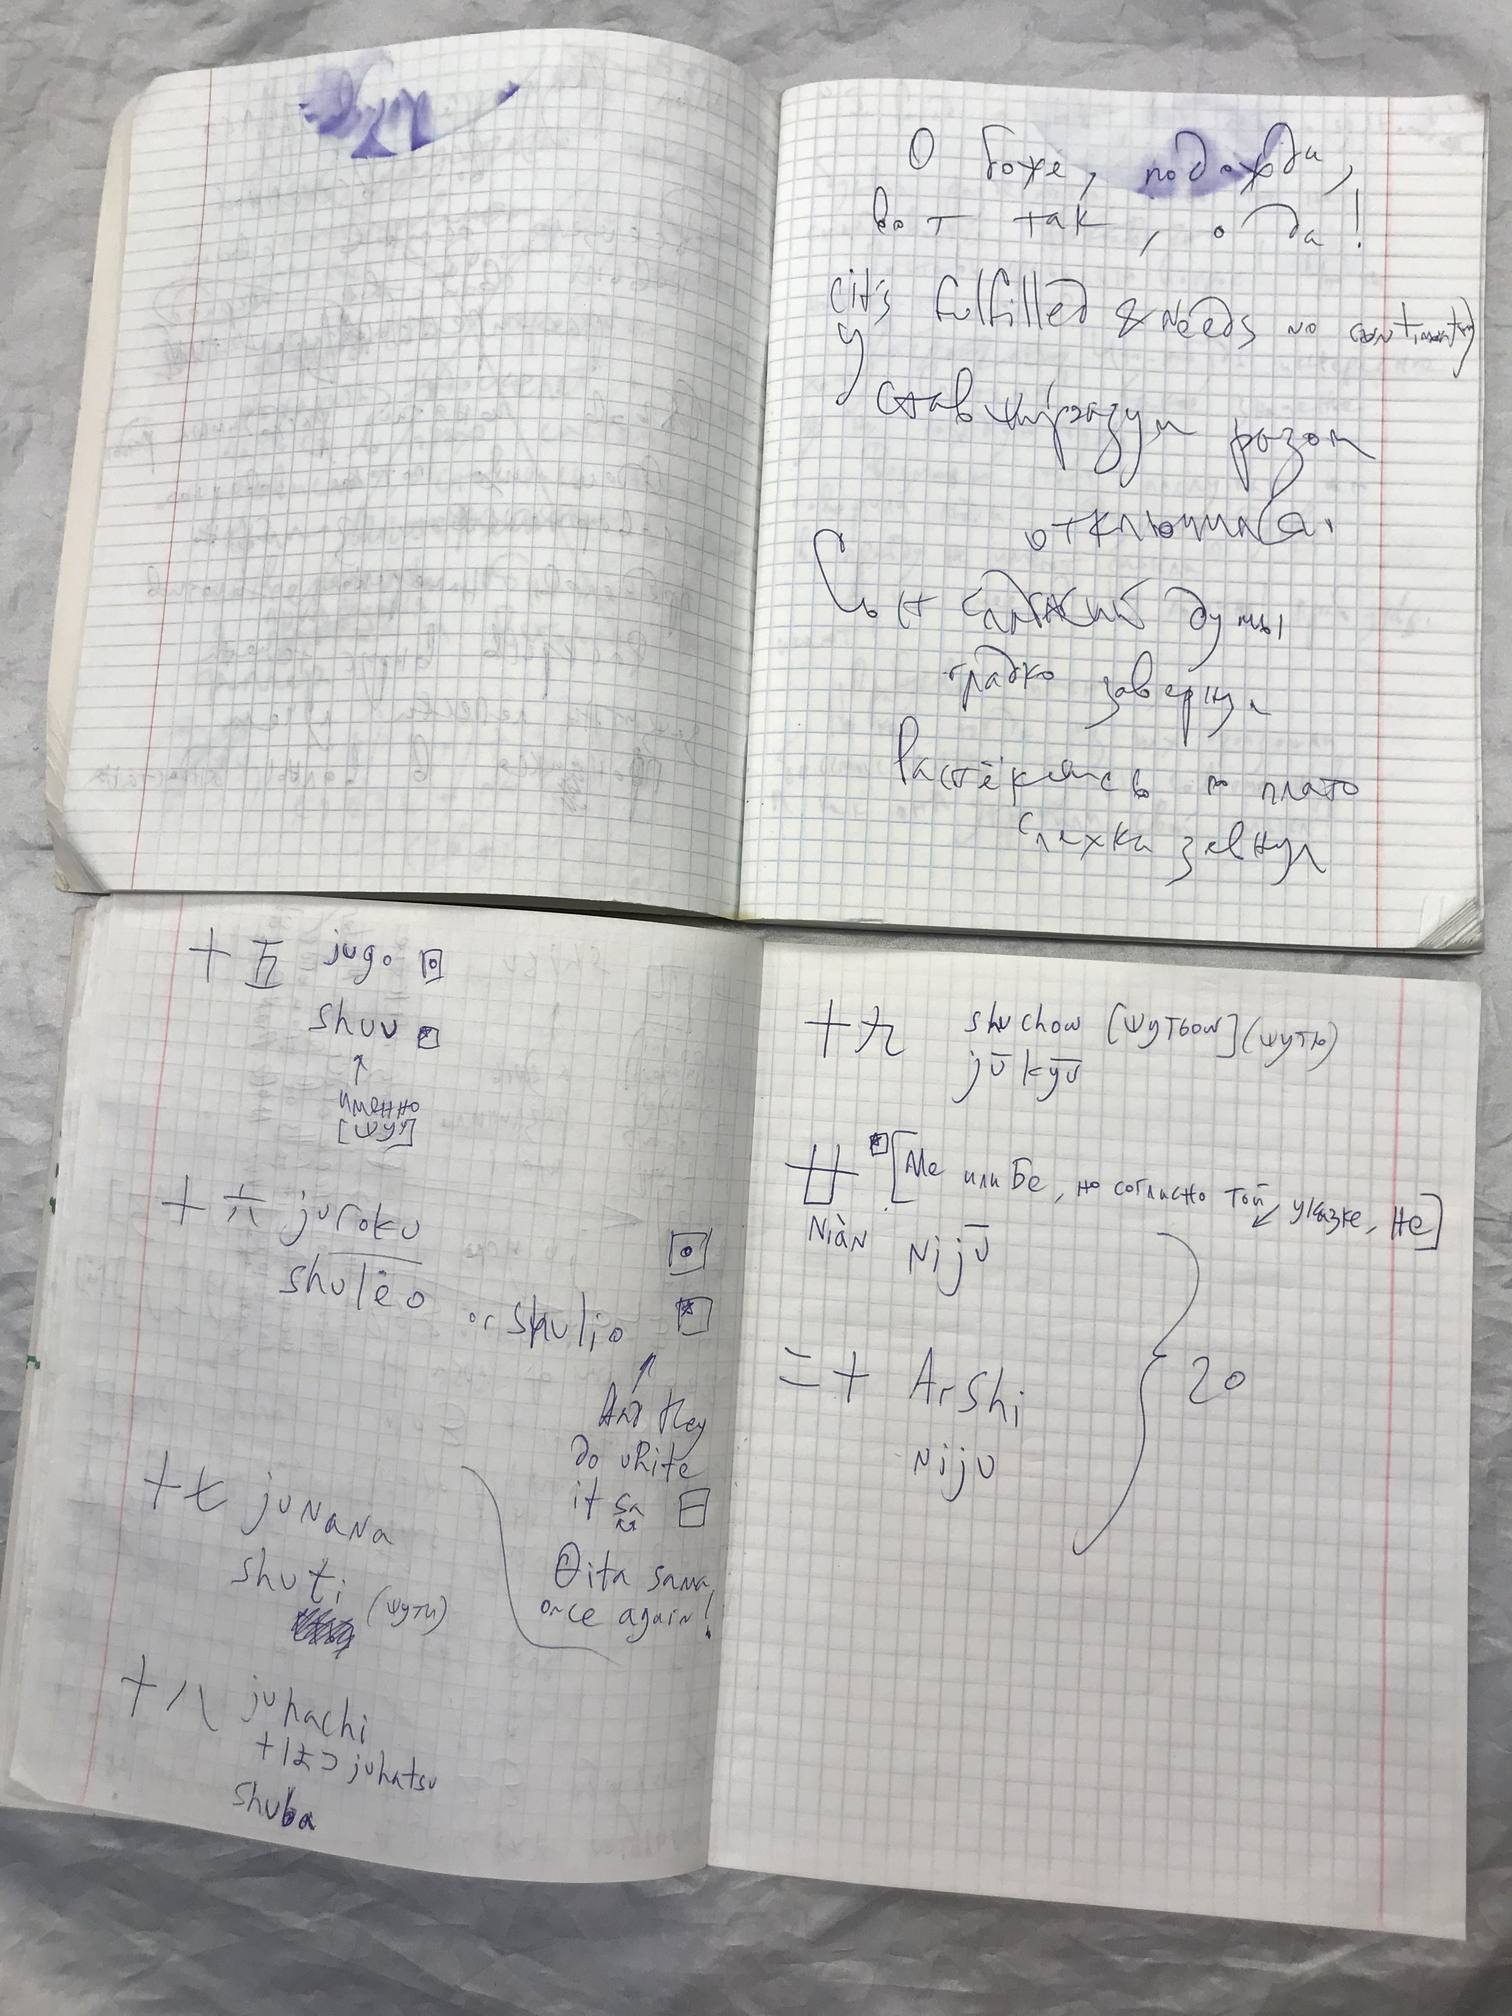 О боже, подожди,
вот так, о да!
it's fulfilled & needs no
Уставший разум разом
отключился.
Сон сладкий думы
гладко завернул
Растёкшись по плато
слегка зевнул
十五 jugo
shuu
именно
[шуу]
十六 juroku
shulëo or shulio
And they
do white
it sa 日
Θita sama
once again!
十七 junana
shuti
(шути)
十八 juhachi
十はつ juhatsu
shuba
十九 shuchow [шутьоw] (шутю)
jūkyū
廿 [Ме или Бе, но согласно той указке, не]
Niàn Nijū
二十 Arshi
Niju
20